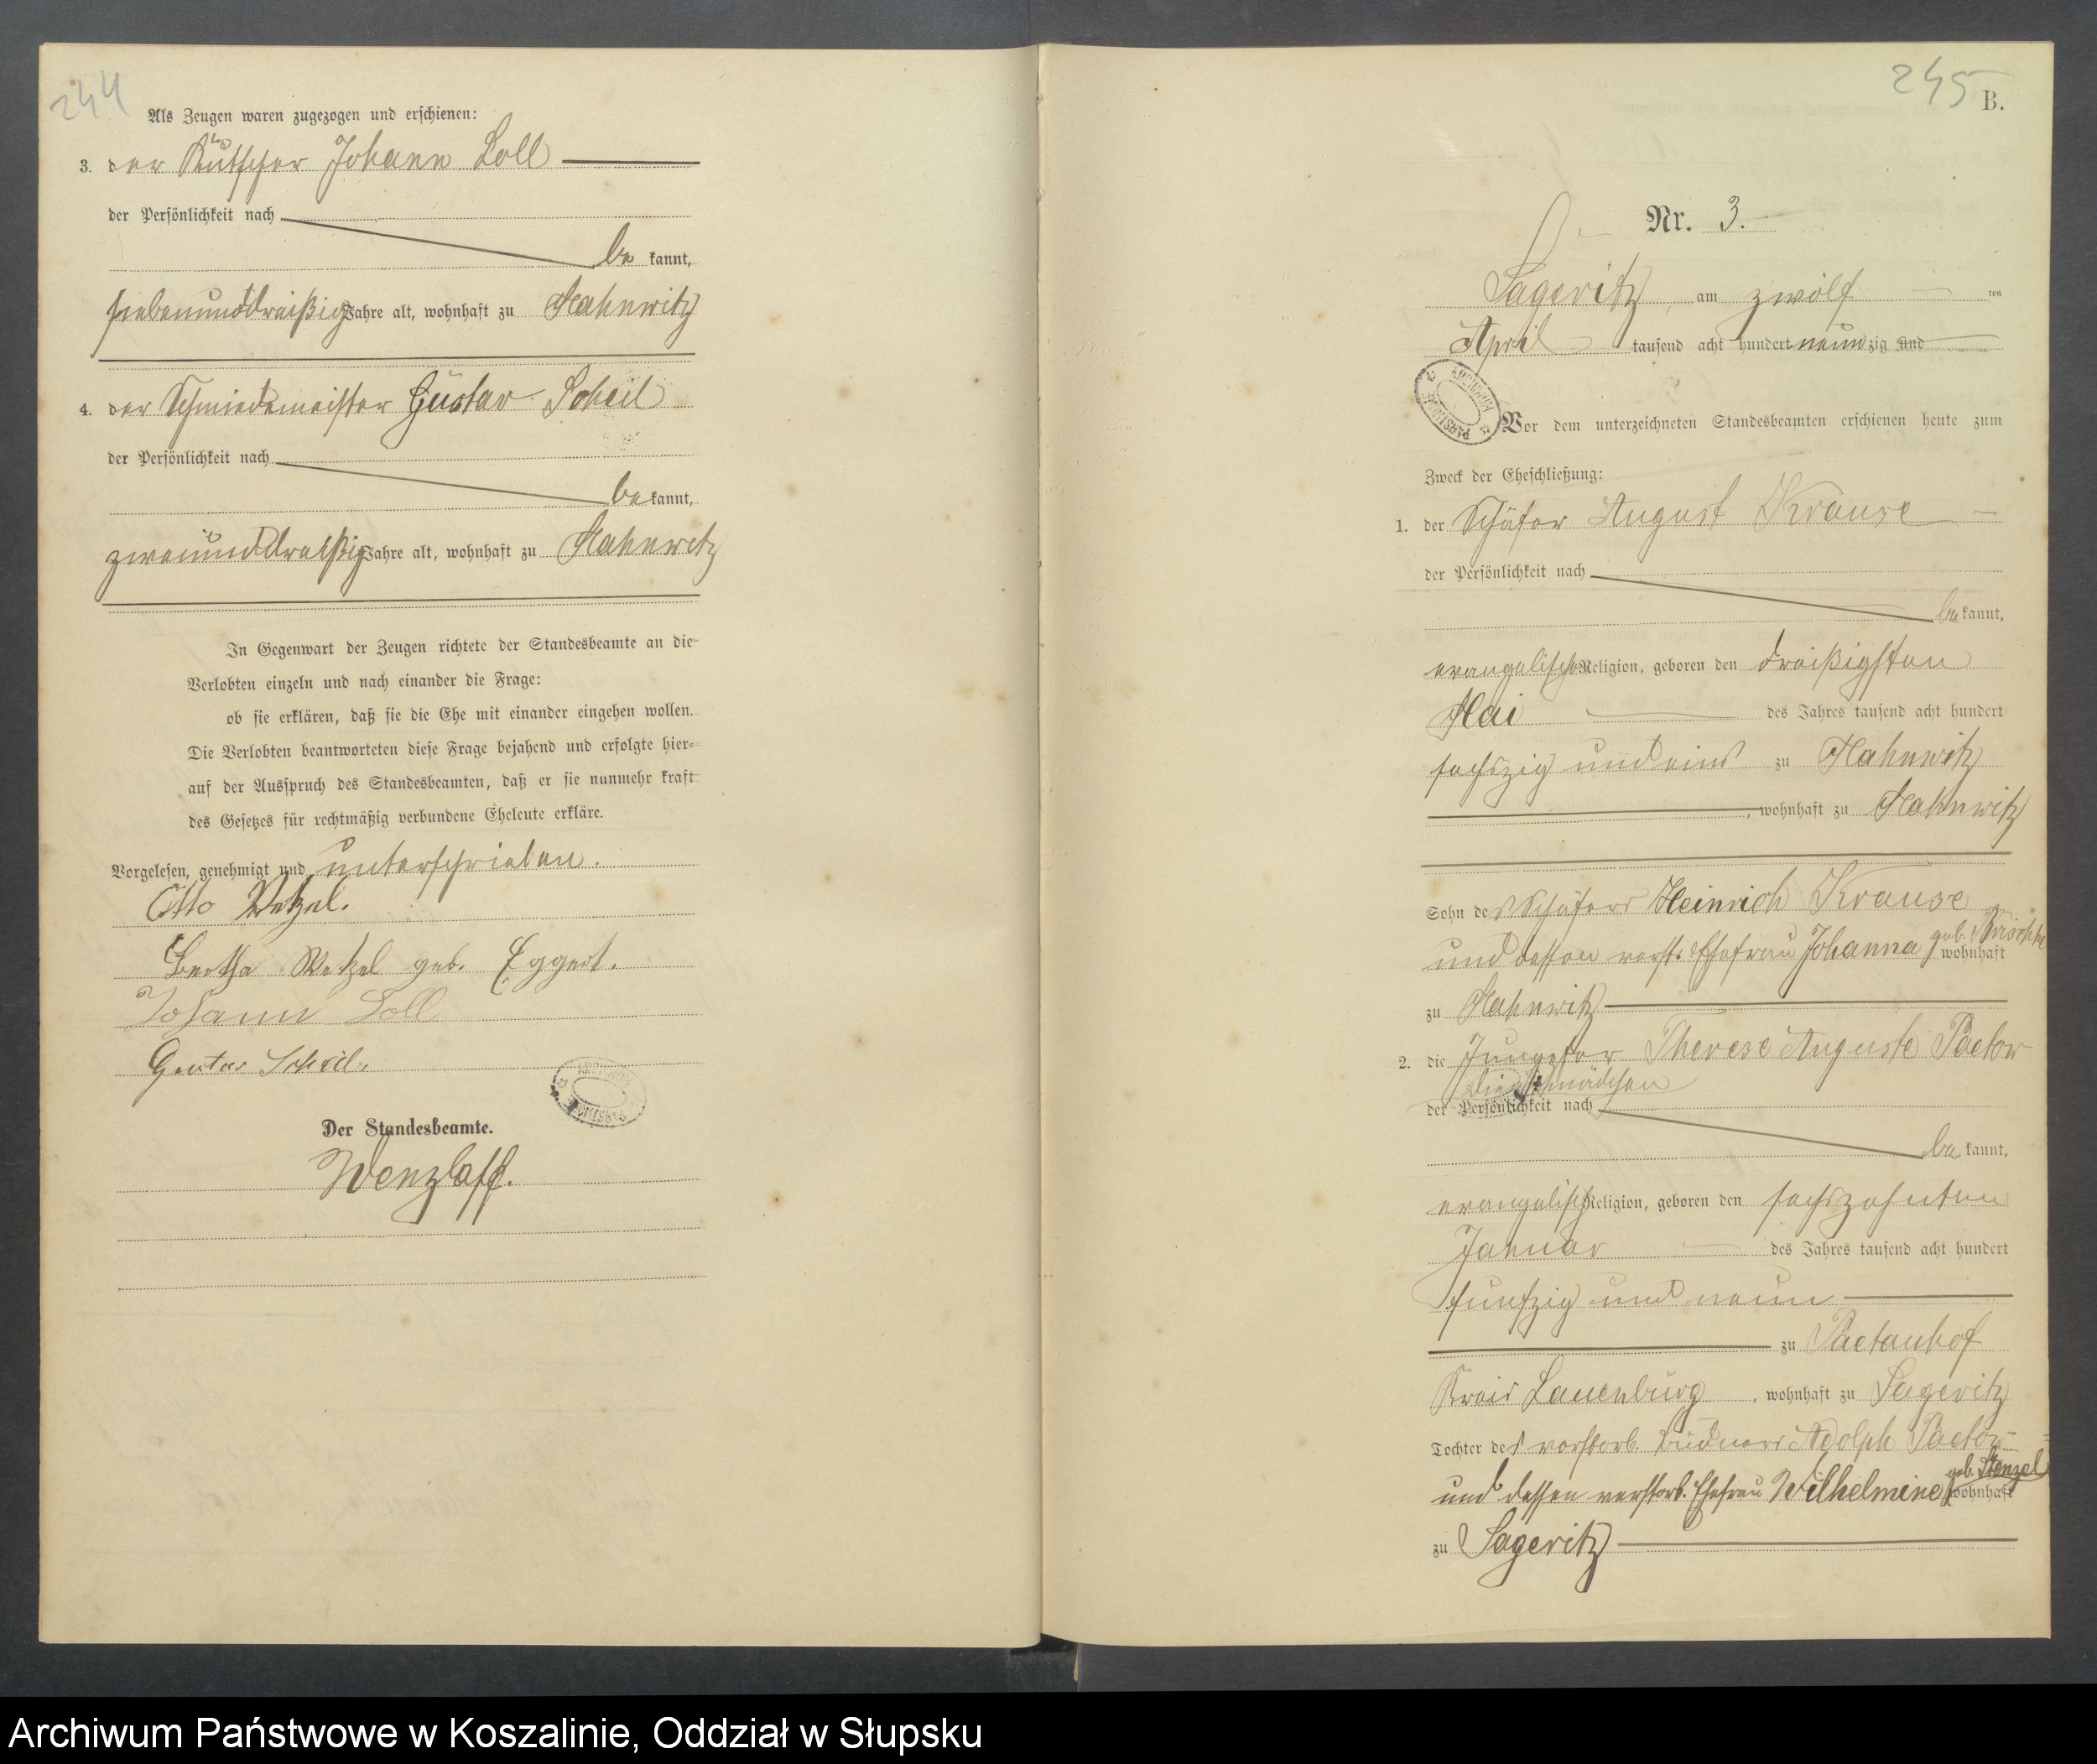 244
Als Zeugen waren zugezogen und erschienen:
3. der Kutscher Johann Loll
der Persönlichkeit nach
be kannt,
siebenunddreißig Jahre alt, wohnhaft zu Mahnwitz
4. der Schmiedemeister Gustav Scheil
der Persönlichkeit nach
be kannt,
zweiunddreißig Jahre alt, wohnhaft zu Mahnwitz
In Gegenwart der Zeugen richtete der Standesbeamte an die
Verlobten einzeln und nach einander die Frage:
ob sie erklären, daß sie die Ehe mit einander eingehen wollen.
Die Verlobten beantworteten diese Frage bejahend und erfolgte hier-
auf der Ausspruch des Standesbeamten, daß er sie nunmehr kraft
des Gesetzes für rechtmäßig verbundene Eheleute erkläre.
Vorgelesen, genehmigt und unterschrieben.
Otto Wetzel.
Bertha Wetzel geb. Eggert.
Johann Loll
Gustav Scheil.
Der Standesbeamte.
Wenzlaff.
245
B.
Nr. 3.
Sageritz, am zwölf ten
April tausend acht hundert neunzig und
Vor dem unterzeichneten Standesbeamten erschienen heute zum
Zweck der Eheschließung:
1. der Schäfer August Krause
der Persönlichkeit nach
be kannt,
evangelisch Religion, geboren den dreißigsten
Mai des Jahres tausend acht hundert
sechszig und eins zu Mahnwitz
, wohnhaft zu Mahnwitz
Sohn des Schäfers Heinrich Krause
und dessen verst. Ehefrau Johanna geb. wohnhaft
zu Mahnwitz
2. die Jungfer Therese Auguste Paetow
Dienstmädchen
der Persönlichkeit nach
be kannt,
evangelisch Religion, geboren den sechszehnten
Januar des Jahres tausend acht hundert
fünfzig und neun
zu Paetauhof
Kreis Lauenburg, wohnhaft zu Sageritz
Tochter des verstorb. Büdners Adolph Paetow
und dessen verstorb. Ehefrau Wilhelmine geb. Stenzel wohnhaft
zu Sageritz
Archiwum Państwowe w Koszalinie, Oddział w Słupsku